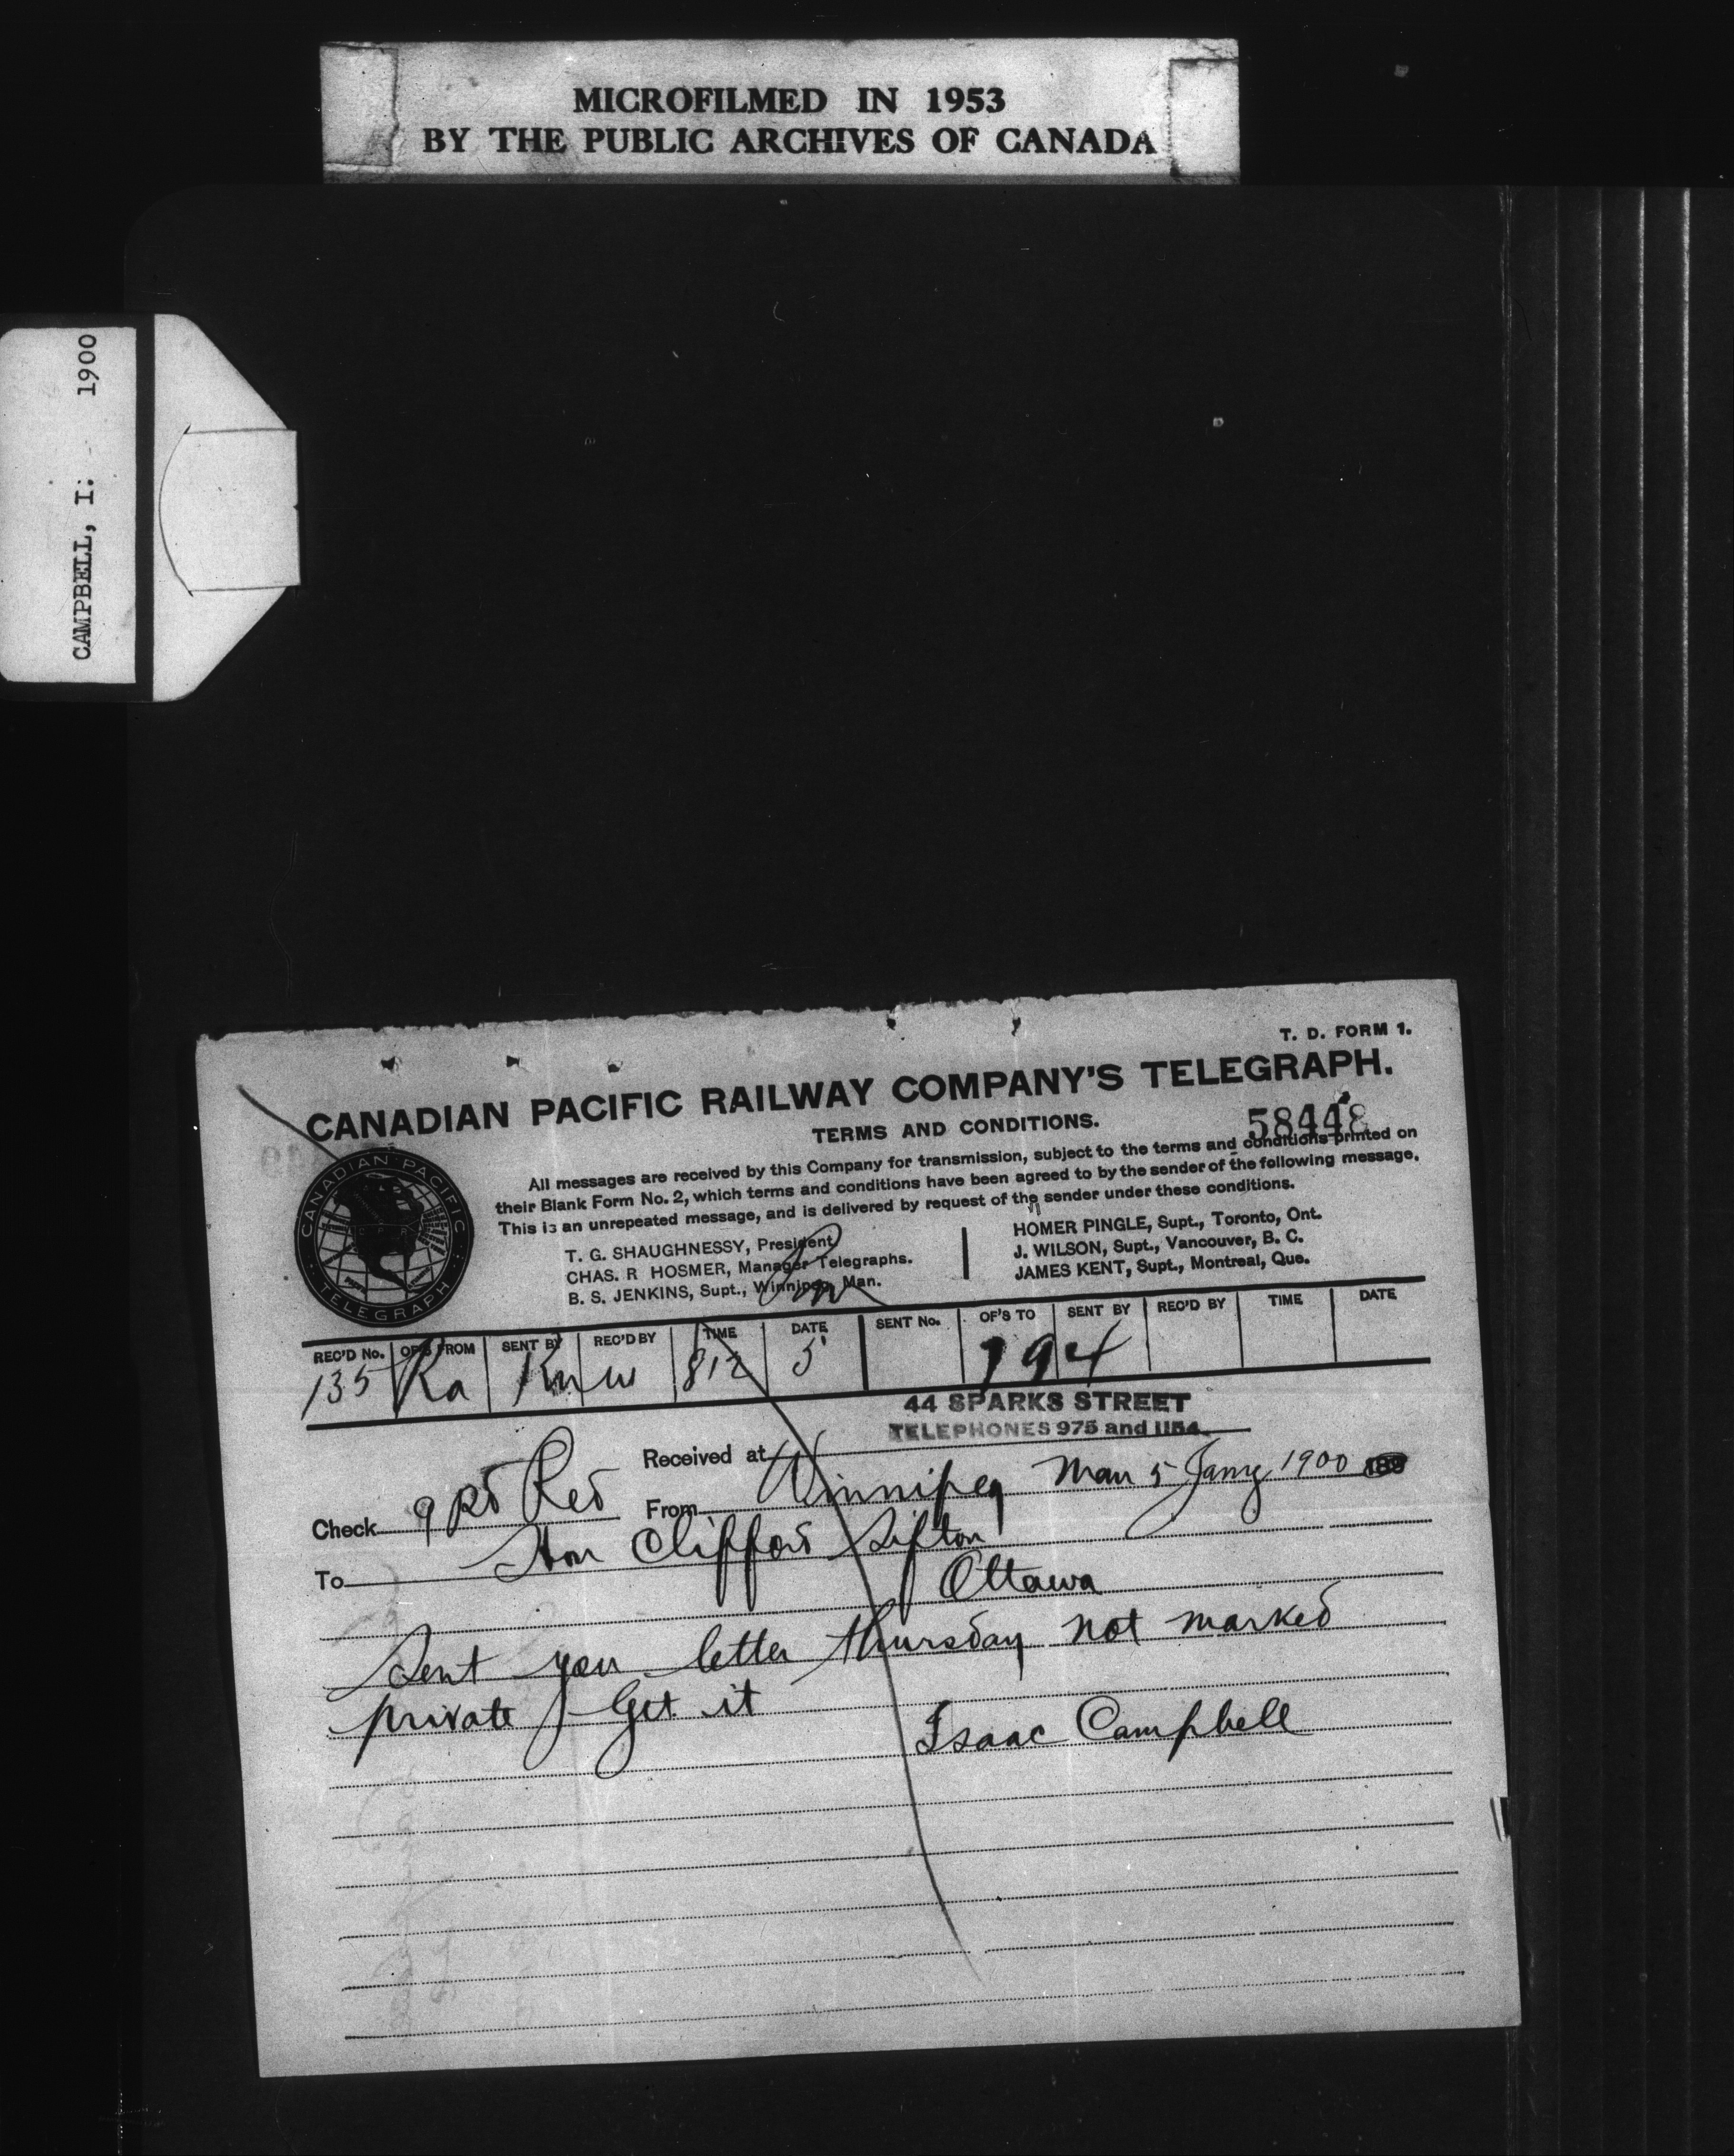 MICROFILMED IN 1953
BY THE PUBLIC ARCHIVES OF CANADA
CAMPBELL, I. 1900
T. D. FORM 1.
CANADIAN PACIFIC RAILWAY COMPANY'S TELEGRAPH.
TERMS AND CONDITIONS.
58448
All messages are received by this Company for transmission, subject to the terms and conditions printed on
their Blank Form No. 2, which terms and conditions have been agreed to by the sender of the following message.
This is an unrepeated message, and is delivered by request of the sender under these conditions.
CANADIAN PACIFIC TELEGRAPH
T. G. SHAUGHNESSY, President
CHAS. R HOSMER, Manager Telegraphs.
B. S. JENKINS, Supt., Winnipeg, Man.
HOMER PINGLE, Supt., Toronto, Ont.
J. WILSON, Supt., Vancouver, B. C.
JAMES KENT, Supt., Montreal, Que.
REC'D No. OF'S FROM SENT BY REC'D BY TIME DATE SENT No. OF'S TO SENT BY REC'D BY TIME DATE
135 Ra 812 5 194
44 SPARKS STREET
TELEPHONES 975 and 1154
Received at
Check 9 Pd Red From Winnipeg Man 5 Jany 1900 189
To Hon Clifford Sifton
Ottawa
Sent you letter thursday not marked
private Get it
Isaac Campbell